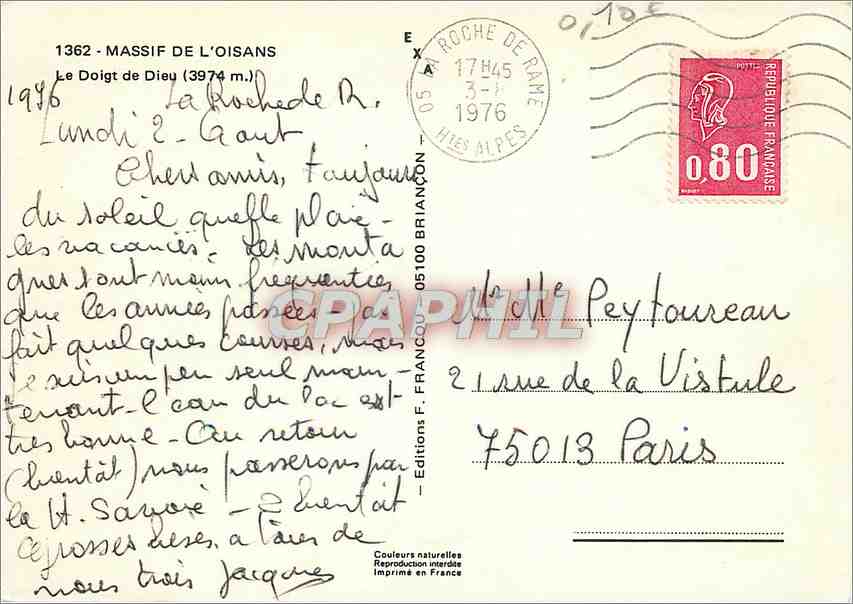 1362 - MASSIF DE L'OISANS
Le Doigt de Dieu (3974 m.)
1976 La Roche de R.
Lundi 2 - Aout
Chers amis, toujours
du soleil quelle plaie -
les vacances - Les monta
gnes sont moins fréquentées
que les années passées -
fait quelques courses, mais
je suis un peu seul main -
tenant - l'eau du lac est
très bonne - Au retour
(bientôt) nous passerons par
la Hte Savoie - bientôt
grosses bises, de
nous trois Jacques
EXA
05 LA ROCHE DE RAME
17H45
3-
1976
Htes ALPES
0,10 €
POSTES
REPUBLIQUE FRANÇAISE
0,80
- Editions F. FRANCOU - 05100 BRIANÇON -
CPAPHIL
Mr Me Peytoureau
21 rue de la Vistule
75013 Paris
Couleurs naturelles
Reproduction interdite
Imprimé en France